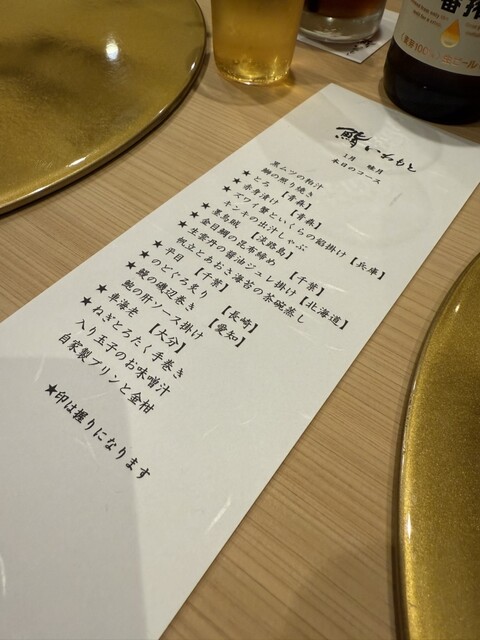 鮨 いわもと
1月 睦月
本日のコース
黒ムツの粕汁
鰤の照り焼き
★とろ 【青森】
★赤身漬け 【青森】
ズワイ蟹といくらの餡掛け【兵庫】
キンキの出汁しゃぶ
★墨烏賊 【淡路島】
★金目鯛の昆布締め 【千葉】
★生雲丹の醤油ジュレ掛け【北海道】
帆立とあおさ海苔の茶碗蒸し
★平目 【千葉】
★のどぐろ炙り 【長崎】
鰆の磯辺巻き 【愛知】
★鮑の肝ソース掛け
★車海老 【大分】
★ねぎとろたく手巻き
入り玉子のお味噌汁
自家製プリンと金柑
★印は握りになります
一番搾
麦芽100%
生ビール